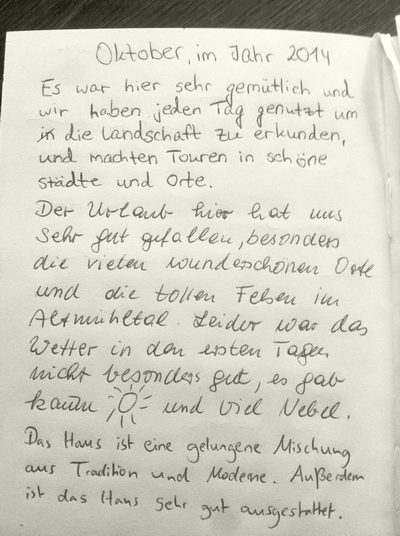 Oktober, im Jahr 2014
Es war hier sehr gemütlich und
wir haben jeden Tag genutzt um
die Landschaft zu erkunden,
und machten Touren in schöne
städte und Orte.
Der Urlaub hier hat uns
sehr gut gefallen, besonders
die vielen wunderschönen Orte
und die tollen Felsen im
Altmühltal. Leider war das
Wetter in den ersten Tagen
nicht besonders gut, es gab
kaum und viel Nebel.
Das Haus ist eine gelungene Mischung
aus Tradition und Moderne. Außerdem
ist das Haus sehr gut ausgestattet.